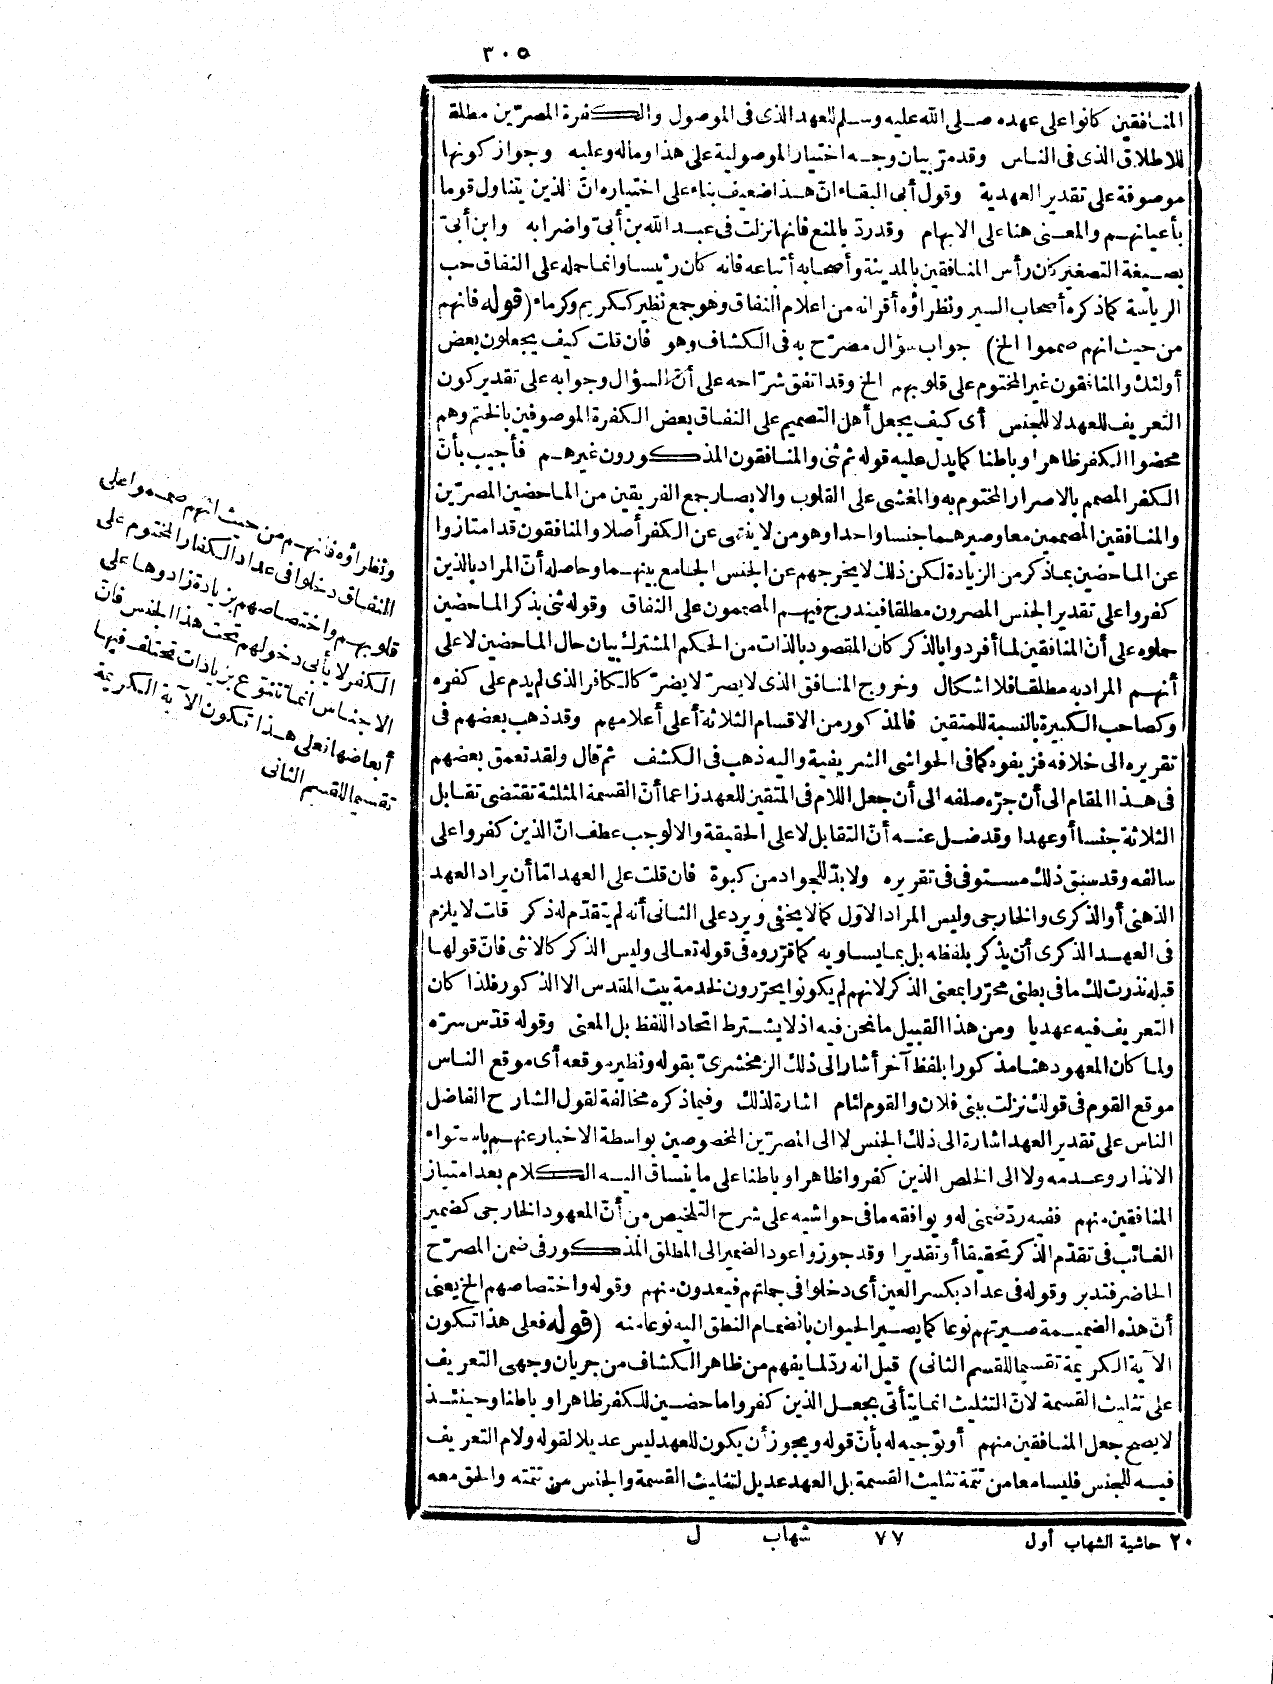 ٣٠٥
المنافقين كانوا على عهده صلى الله عليه وسلم للعهد الذى فى الموصول والكفرة المصرّين مطلقة
للاطلاق الذى فى الناس وقد مرّ بيان وجه اختيار الموصولية على هذا وماله وعليه وجواز كونها
موصوفة على تقدير العهدية وقول أبى البقاء انّ هذا ضعيف بناء على اختياره انّ الذين يتناول قوما
بأعيانهم والمعنى هنا على الابهام وقد ردّ بالمنع فانها نزلت فى عبد الله بن أبىّ واضرابه وابن أبىّ
بصيغة التصغير كان رأس المنافقين بالمدينة وأصحابه أتباعه فانه كان رئيسا وانما حمله على النفاق حب
الرياسة كما ذكره أصحاب السير ونظراؤه أقرانه من اعلام النفاق وهو جمع نظير ككريم وكرماء (قوله فانهم
من حيث انهم صمموا الخ) جواب سؤال مصرّح به فى الكشاف وهو فان قلت كيف يجعلون بعض
أولئك والمنافقون غير المختوم على قلوبهم الخ وقد اتفق شرّاحه على أنّ السؤال وجوابه على تقدير كون
التعريف للعهد لا للجنس أى كيف يجعل أهل التصميم على النفاق بعض الكفرة الموصوفين بالختم وهم
محضوا الكفر ظاهرا وباطنا كما يدل عليه قوله ثم ثنى والمنافقون المذكورون غيرهم فأجيب بأنّ
الكفر المصمم بالاصرار المختوم به والمغشى على القلوب والابصار جمع الفريقين من الماحضين المصرّين
والمنافقين المصممين معا وصيرهما جنسا واحدا وهو من لا ينتهى عن الكفر أصلا والمنافقون قد امتازوا
عن الماحضين بما ذكر من الزيادة لكن ذلك لا يخرجهم عن الجنس الجامع بينهما وحاصله أنّ المراد بالذين
كفروا على تقدير الجنس المصرون مطلقا فيندرج فيهم المصممون على النفاق وقوله ثنى بذكر الماحضين
حملوه على أنّ المنافقين لما أفردوا بالذكر كان المقصود بالذات من الحكم المشترك بيان حال الماحضين لا على
أنهم المراد به مطلقا فلا اشكال وخروج المنافق الذى لا يصرّ لا يضرّ كالكافر الذى لم يدم على كفره
وكصاحب الكبيرة بالنسبة للمتقين فالمذكور من الاقسام الثلاثة أعلى أعلامهم وقد ذهب بعضهم فى
تقريره الى خلافه فزيفوه كما فى الحواشى الشريفية واليه ذهب فى الكشف ثم قال ولقد تعمق بعضهم
فى هذا المقام الى أن جرّه صلفه الى أن جعل اللام فى المتقين للعهد زاعما أنّ القسمة المثلثة تقتضى تقابل
الثلاثة جنسا أو عهدا وقد ضل عنه أنّ التقابل لا على الحقيقة والا لوجب عطف انّ الذين كفروا على
سالفه وقد سبق ذلك مستوفى فى تقريره ولا بدّ للجواد من كبوة فان قلت على العهد امّا أن يراد العهد
الذهنى أو الذكرى والخارجى وليس المراد الاول كما لا يخفى ويرد على الثانى أنه لم يتقدّم له ذكر قلت لا يلزم
فى العهد الذكرى أن يذكر بلفظه بل بما يساويه كما قرّروه فى قوله تعالى وليس الذكر كالانثى فانّ قولها
قبله نذرت لك ما فى بطنى محرّرا بمعنى الذكر لانهم لم يكونوا يحرّرون لخدمة بيت المقدس الا الذكور فلذا كان
التعريف فيه عهديا ومن هذا القبيل ما نحن فيه اذ لا يشترط اتحاد اللفظ بل المعنى وقوله قدّس سرّه
ولما كان المعهود هنا مذكورا بلفظ آخر أشار الى ذلك الزمخشرىّ بقوله ونظير موقعه أى موقع الناس
موقع القوم فى قولك نزلت ببنى فلان والقوم لئام اشارة لذلك وفيما ذكره مخالفة لقول الشارح الفاضل
الناس على تقدير العهد اشارة الى ذلك الجنس لا الى المصرّين المخصوصين بواسطة الاخبار عنهم باستواء
الانذار وعدمه ولا الى الخلص الذين كفروا ظاهرا وباطنا على ما ينساق اليه الكلام بعد امتياز
المنافقين منهم ففيه ردّ ضمنى له ويوافقه ما فى حواشيه على شرح التلخيص من أنّ المعهود الخارجى كضمير
الغائب فى تقدّم الذكر تحقيقا أو تقديرا وقد جوزوا عود الضمير الى المطلق المذكور فى ضمن المصرّح
الحاضر فتدبر وقوله فى عداد بكسر العين أى دخلوا فى جملتهم فيعدون منهم وقوله واختصاصهم الخ يعنى
أنّ هذه الضميمة صيرتهم نوعا كما يصير الحيوان بانضمام النطق اليه نوعا منه (قوله فعلى هذا تكون
الآية الكريمة تقسيما للقسم الثانى) قيل انه ردّ لما يفهم من ظاهر الكشاف من جريان وجهى التعريف
على تثليث القسمة لانّ التثليث انما يتأتى بجعل الذين كفروا ماحضين للكفر ظاهرا وباطنا وحينئذ
لا يصح جعل المنافقين منهم أو توجيه له بأنّ قوله ويجوز أن يكون للعهد ليس عديلا لقوله ولام التعريف
فيه للجنس فليسا معا من تتمة تثليث القسمة بل العهد عديل لتثليث القسمة والجنس من تتمته والحق معه
ونظراؤه فانهم من حيث انهم صمموا على
النفاق دخلوا فى عداد الكفار المختوم على
قلوبهم واختصاصهم بزيادة زادوها على
الكفر لا يأبى دخولهم تحت هذا الجنس فانّ
الاجناس انما تتنوّع بزيادات تختلف فيها
أبعاضها فعلى هذا تكون الآية الكريمة
تقسيما للقسم الثانى
٢٠ حاشية الشهاب أول ٧٧ شهاب ل